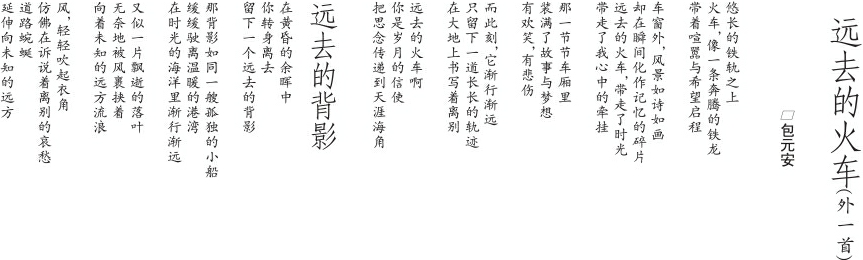 远去的火车（外一首）
□包元安
悠长的铁轨之上
火车，像一条奔腾的铁龙
带着喧嚣与希望启程
车窗外，风景如诗如画
却在瞬间化作记忆的碎片
远去的火车，带走了时光
带走了我心中的牵挂
那一节节车厢里
装满了故事与梦想
有欢笑，有悲伤
而此刻，它渐行渐远
只留下一道长长的轨迹
在大地上书写着离别
远去的火车啊
你是岁月的信使
把思念传递到天涯海角
远去的背影
在黄昏的余晖中
你转身离去
留下一个远去的背影
那背影如同一艘孤独的小船
缓缓驶离温暖的港湾
在时光的海洋里渐行渐远
又似一片飘逝的落叶
无奈地被风裹挟着
向着未知的远方流浪
风，轻轻吹起衣角
仿佛在诉说着离别的哀愁
道路蜿蜒
延伸向未知的远方